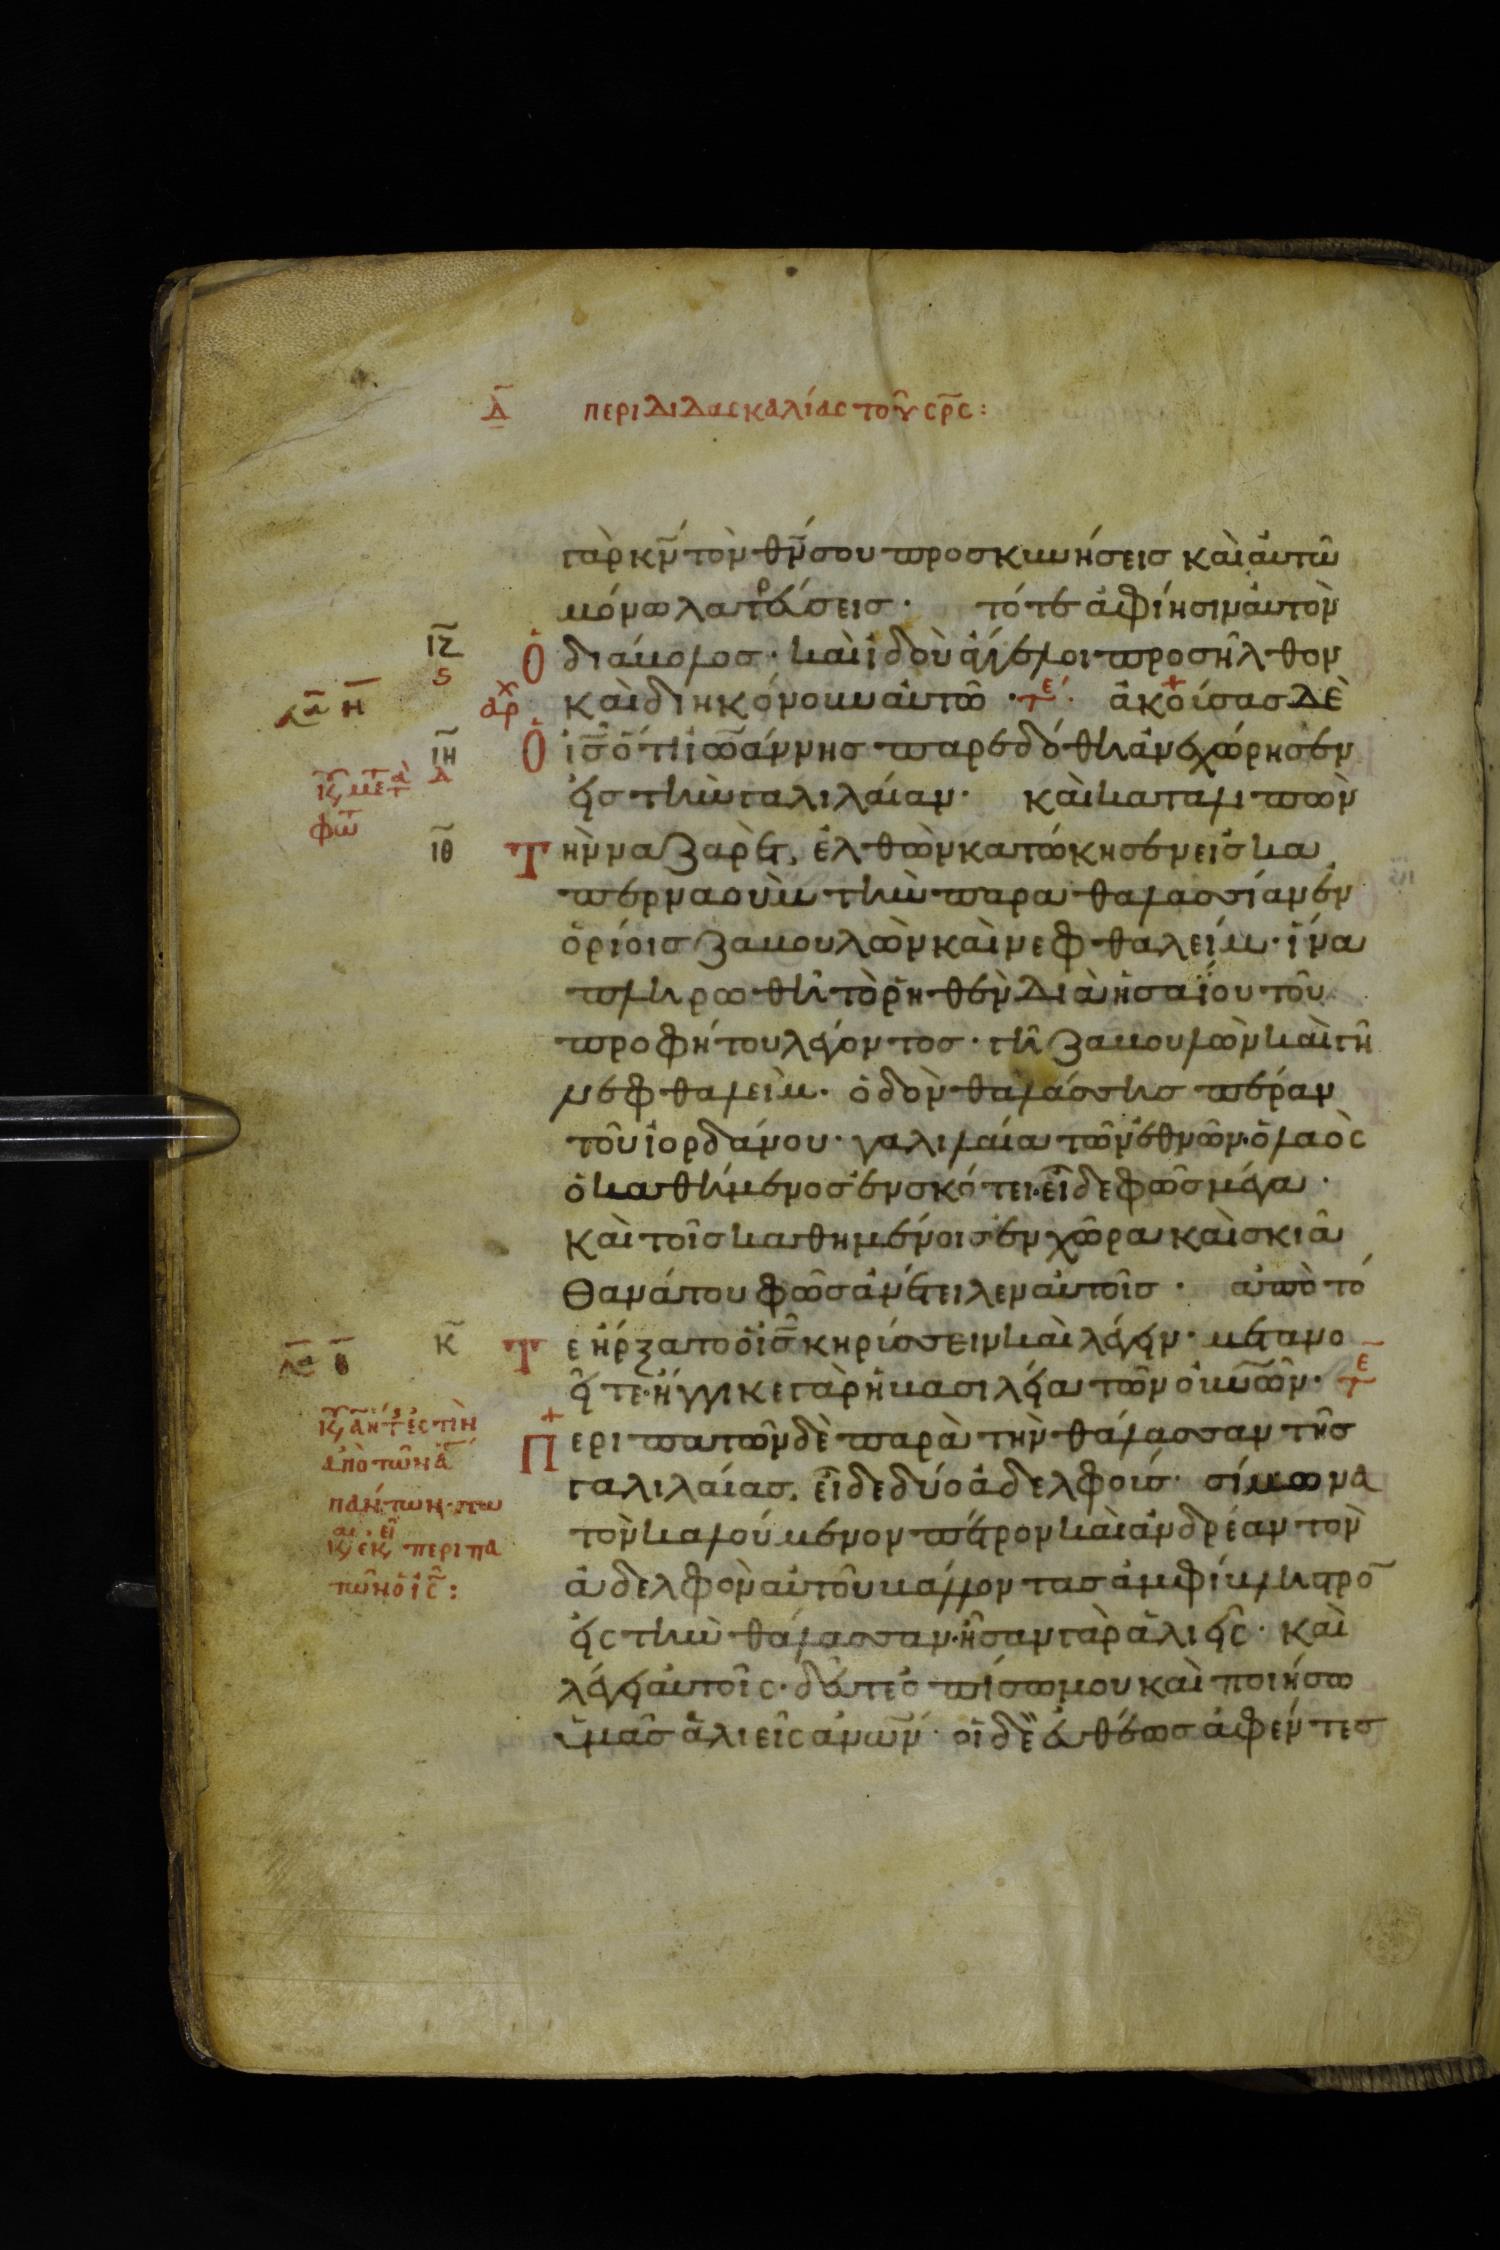 Δ̅ περι διδασκαλίας τοῦ σρ̅ς:
γὰρ κν̅ τὸν θν̅ σου προσκυνήσεις καὶ αὐτῶ
μόνω λατρεύσεις· τότε ἀφίησιν αὐτὸν
ΙΖ̅ ϛ ὁ διάβολος· καὶ ἰδοὺ ἄγγελοι προσῆλθον
λα̅ Η̅ ἀρχ καὶ διηκόνουν αὐτῶ · τε· ἀκούσας δὲ
ΙΗ̅ Δ ὁ ις̅ ὅτι ἰωάννης παρεδόθη ἀνεχώρησεν
κυ μετὰ τ εἰς τὴν γαλιλαίαν· καὶ καταλιπὼν
φωτ
ΙΘ̅ Τὴν ναζαρέτ, ἐλθὼν κατώκησεν εἰς κα
περναοὺμ τὴν παραθαλασσίαν ἐν
ὁρίοις ζαβουλὼν καὶ νεφθαλείμ· ἵνα
πληρωθῆ τὸ ῥηθὲν διὰ ἡσαΐου τοῦ
προφήτου λέγοντος· γῆ ζαβουλὼν καὶ γῆ
νεφθαλεὶμ· ὁδὸν θαλάσσης πέραν
τοῦ ἰορδάνου· γαλιλαία τῶν ἐθνῶν· ὁ λαὸς
ὁ καθήμενος ἐν σκότει· εἶδε φῶς μέγα·
καὶ τοῖς καθημένοις ἐν χῶρα καὶ σκιᾶ
θανάτου φῶς ἀνέτειλεν αὐτοῖς· ἀπὸ τό
Κ̅ Τε ἤρξατο ὁ ις̅ κηρύσσειν καὶ λέγειν· μετανο
εῖτε· ἤγγικε γὰρ ἡ βασιλεία τῶν οὐνῶν· τε
Περιπατῶν δὲ παρὰ τὴν θάλασσαν τῆς
ἀπὸ τῶν ἁ γαλιλαίας, εἶδε δύο ἀδελφούς· σίμωνα
πάντων τὸν καλούμενον πέτρον καὶ ἀνδρέαν τὸν
περιπα ἀδελφὸν αὐτοῦ βάλλοντας ἀμφίβληστρο̅
τῶν ὁ ις̅: εἰς τὴν θάλασσαν· ἦσαν γὰρ ἁλιεῖς· καὶ
λέγει αὐτοῖς· δεῦτε ὀπίσω μου καὶ ποιήσω
ὑμᾶς ἁλιεῖς ἀνων̅· οἱ δὲ εὐθέως ἀφέντες